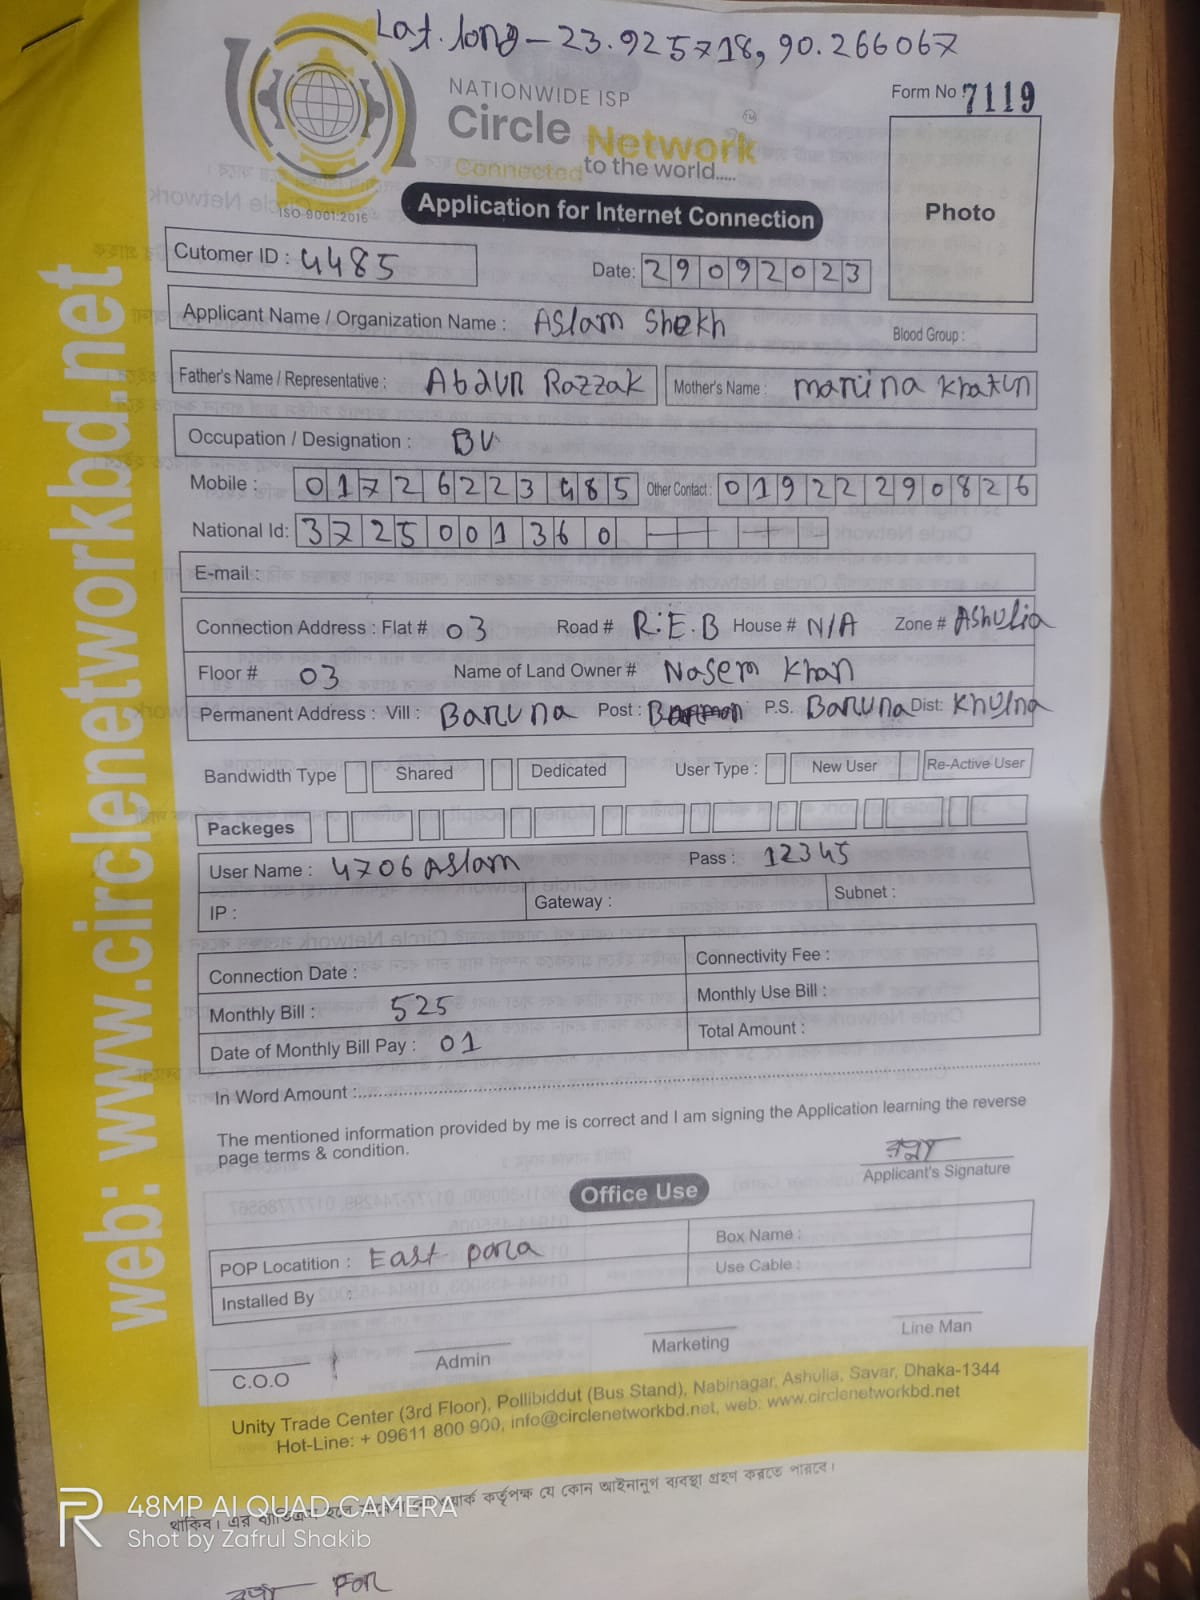 Lat. long - 23.925718, 90.266067
NATIONWIDE ISP
Form No : 7119
Circle Network TM
Connected to the world.....
ISO-9001:2016
Application for Internet Connection
Photo
Cutomer ID : 4485
Date: 29092023
Applicant Name / Organization Name : Aslam Shekh
Blood Group :
Father's Name / Representative : Abdun Razzak Mother's Name : Maruna Khatun
Occupation / Designation :
Mobile : 01726223485 Other Contact : 01922290826
National Id: 3725001360
E-mail :
Connection Address : Flat # 03 Road # R.E.B House # N/A Zone # Ashulia
Floor # 03 Name of Land Owner # Nasem Khan
Permanent Address : Vill : Baruna Post : P.S. Baruna Dist: Khulna
Bandwidth Type Shared Dedicated User Type : New User Re-Active User
Packeges
User Name : 4706 Aslam Pass : 12345
IP : Gateway : Subnet :
Connection Date : Connectivity Fee :
Monthly Bill : 525 Monthly Use Bill :
Date of Monthly Bill Pay : 01 Total Amount :
In Word Amount :
The mentioned information provided by me is correct and I am signing the Application learning the reverse
page terms & condition.
Applicant's Signature
Office Use
POP Locatition : East para Box Name :
Installed By : Use Cable :
C.O.O Admin Marketing Line Man
Unity Trade Center (3rd Floor), Pollibiddut (Bus Stand), Nabinagar, Ashulia, Savar, Dhaka-1344
Hot-Line: + 09611 800 900, info@circlenetworkbd.net, web: www.circlenetworkbd.net
web: www.circlenetworkbd.net
কর্তৃপক্ষ যে কোন আইনানুগ ব্যবস্থা গ্রহণ করতে পারবে।
থাকিব। এর
48MP AI QUAD CAMERA
Shot by Zafrul Shakib
For